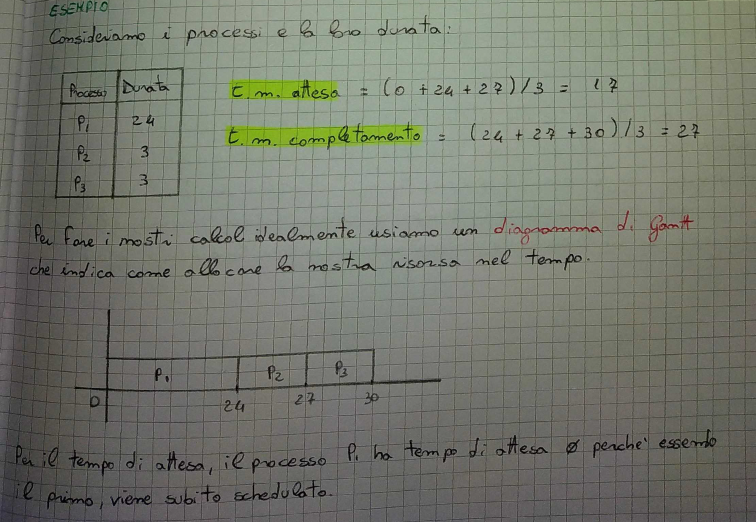 ESEMPIO
Consideriamo i processi e la loro durata:
Processo Durata
P1 24
P2 3
P3 3
t.m. attesa = (0 + 24 + 27) / 3 = 17
t.m. completamento = (24 + 27 + 30) / 3 = 27
Per fare i nostri calcol idealmente usiamo un diagramma di Gantt
che indica come allocare la nostra risorsa nel tempo.
P1 P2 P3
0 24 27 30
Per il tempo di attesa, il processo P1 ha tempo di attesa 0 perche' essendo
il primo, viene subito schedulato.